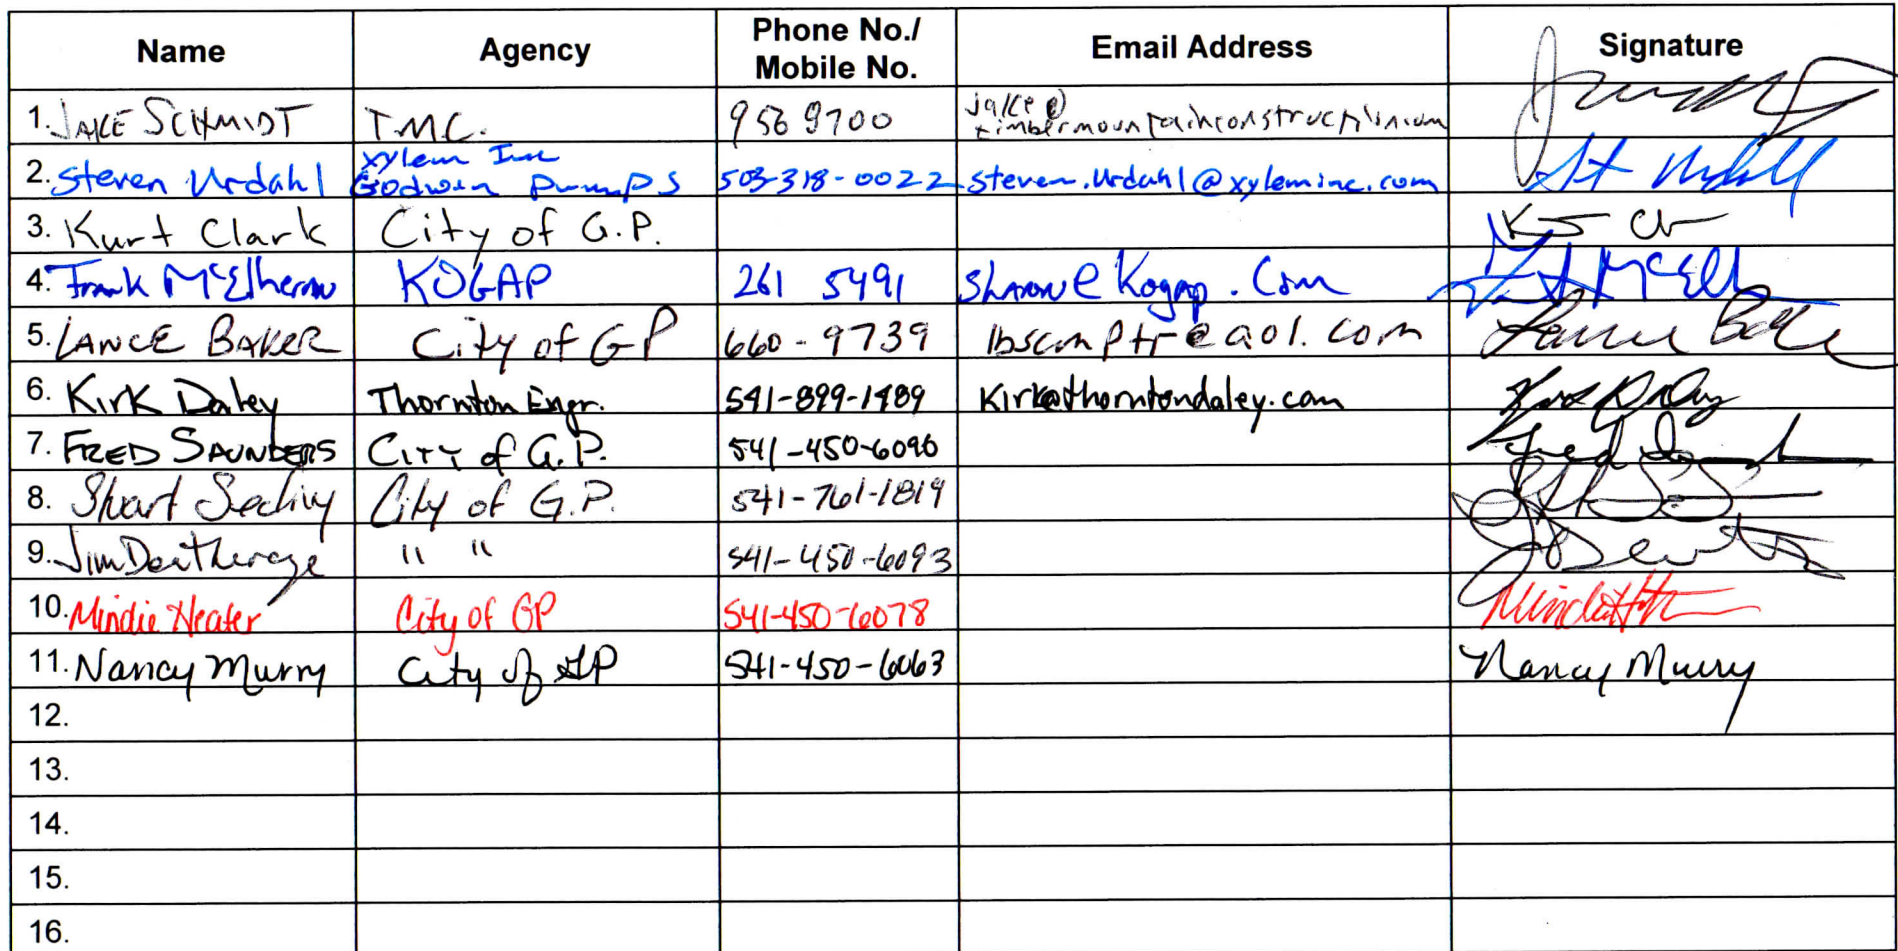 Name Agency Phone No./ Mobile No. Email Address Signature
1. JAKE SCHMIDT T.M.C. 956 9700 jake@ timbermountainconstruction.com
2. Steven Urdahl Xylem Inc Godwin Pumps 503-318-0022 steven.urdahl@xyleminc.com
3. Kurt Clark City of G.P.
4. Frank McElheran KOGAP 261 5491 Sharon@Kogap.Com
5. LANCE BAKER City of GP 660-9739 lbscmptr@aol.com Lance
6. Kirk Daley Thornton Engr. 541-899-1489 Kirk@thorntondaley.com
7. FRED SAUNDERS CITY of G.P. 541-450-6096 Fred
8. City of G.P. 541-761-1819
9. Jim Deatherage " " 541-450-6093
10. Mindie Heater City of GP 541-450-6078
11. Nancy Murry City of GP 541-450-6063 Nancy Murry
12.
13.
14.
15.
16.